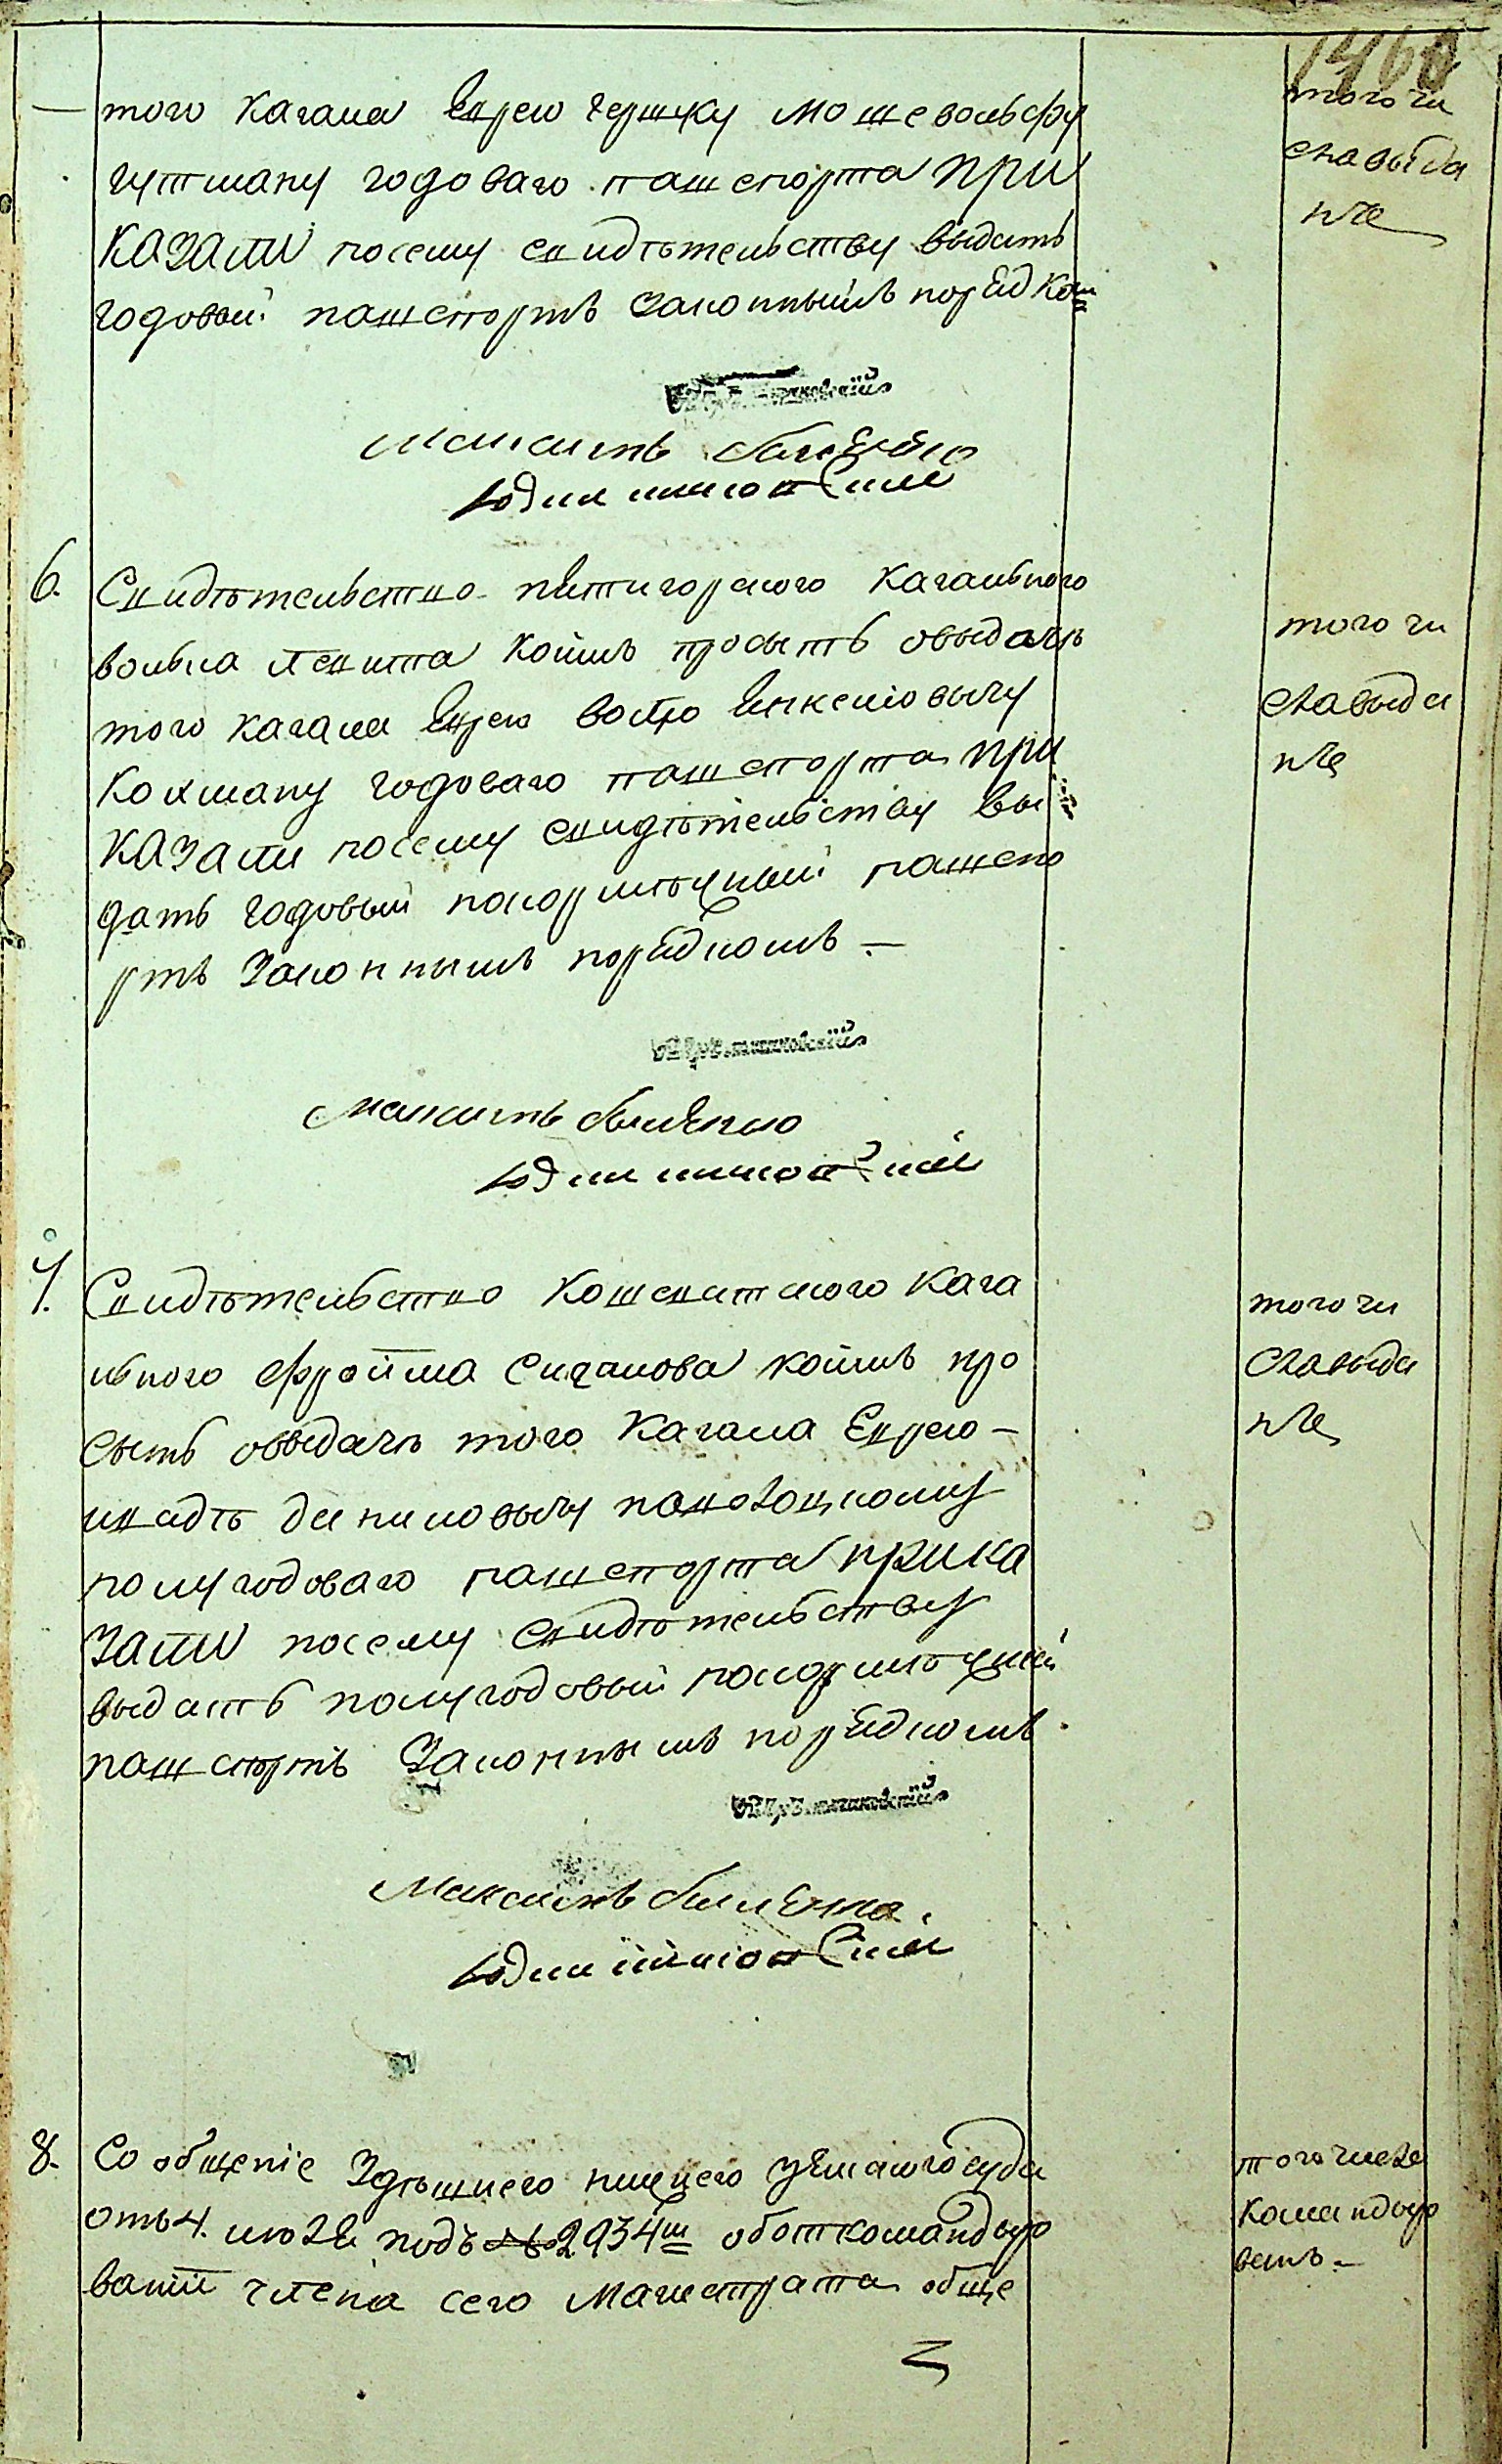 146
того кагала Еврею гершку мошевольфу
гутману годоваго пашпорта при
казали посему свидѣтельству выдать
годовый пашпортъ законнымъ порядком
того чи
сла выда
нъ
Максимъ
6. Свидѣтельство пятигорского кагального
волька коймъ просыть овыдачѣ
того кагала Еврею
кохману годоваго пашпорта при
казали посему свидѣтельству вы
дать годовый покормѣжный пашпо
ртъ законнымъ порядкомъ —
того чи
сла выда
нъ
Максимъ
7. Свидѣтельство кошеватского кага
льного фройма коймъ про
сыть овыдачѣ того кагала Еврею —
даниловычу
полугодоваго пашпорта прика
зали посему свидѣтельству
выдать полугодовый покормѣжный
пашпортъ законнымъ порядкомъ.
того чи
сла выда
нъ
Максимъ
8. Сообщеніе здѣшнего нижнего земского суда
отъ 4. июля подъ № 2934м оботкомандыро
ваніи члена сего магистрата обще
того числа
командыро
ванъ. —